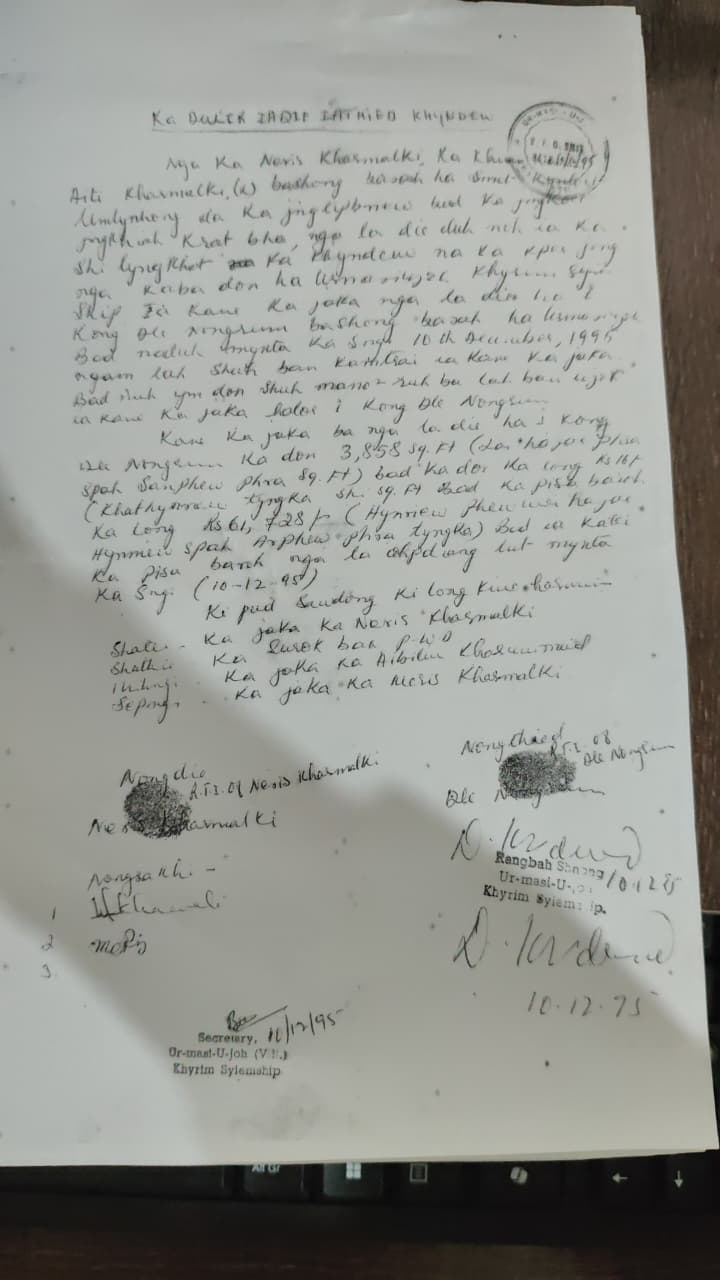 Ka DULIR IADIE IATHIED KHYNDEW
Nga Ka Neris Kharmalki, Ka Khun
Kharmalki, (L) bashong basah ha
Umlynkeng da Ka jingeh bad Ka
Krat bha, nga la die duh noh ia Ka
Shi lyngkhot Ka Khyndew na Ka kper jong
nga Kaba don ha Urmasiujoh Khyrim
Ship Ia Kane Ka jaka nga la die ha i
Kong Dle Nongrum bashong basah ha
Bad naduh mynta Ka Sngi 10th December, 1995
ngam lah Shuh ban Kamtsai ia Kane Ka jaka
Bad Ruh ym don Shuh mano-ruh ba lah ban
ia Kane Ka jaka halor i Kong Dle Nongrum
Kane Ka jaka ba nga la die ha i Kong
Dle Nongrum Ka don 3,858 Sq.Ft (Lai hajar phra
Spah Sanphew phra Sq.Ft) bad Ka dor Ka long Rs 16/-
(Khathynriew tyngka Shi Sq.Ft Bad Ka pisa baroh
Ka long Rs 61,728/- (Hynriew phew wei hajar
Hynniew Spah Arphew phra tyngka) Bad ia Katei
Ka pisa baroh nga la shpdiang lut mynta
Ka Sngi (10-12-95)
Ki pud Saudong Ki long Kine harum
Shatei - Ka jaka Ka Neris Kharmalki
Shathie Ka Surok bah P.W.D
Ka jaka Ka Aibilin Kharumnuid
Sepngi - Ka jaka Ka Meris Kharmalki
Nongdie
R.T.I. of Neris Kharmalki
Neris Kharmalki
Nongthied
R.T.I. of Dle Nongrum
Dle Nongrum
Rangbah Shnong 10.12.95
Ur-masi-U-joh
Khyrim Syiemship.
Nongsakhi -
1
2
3.
10.12.95
Secretary, 10/12/95
Ur-masi-U-joh (V.)
Khyrim Syiemship